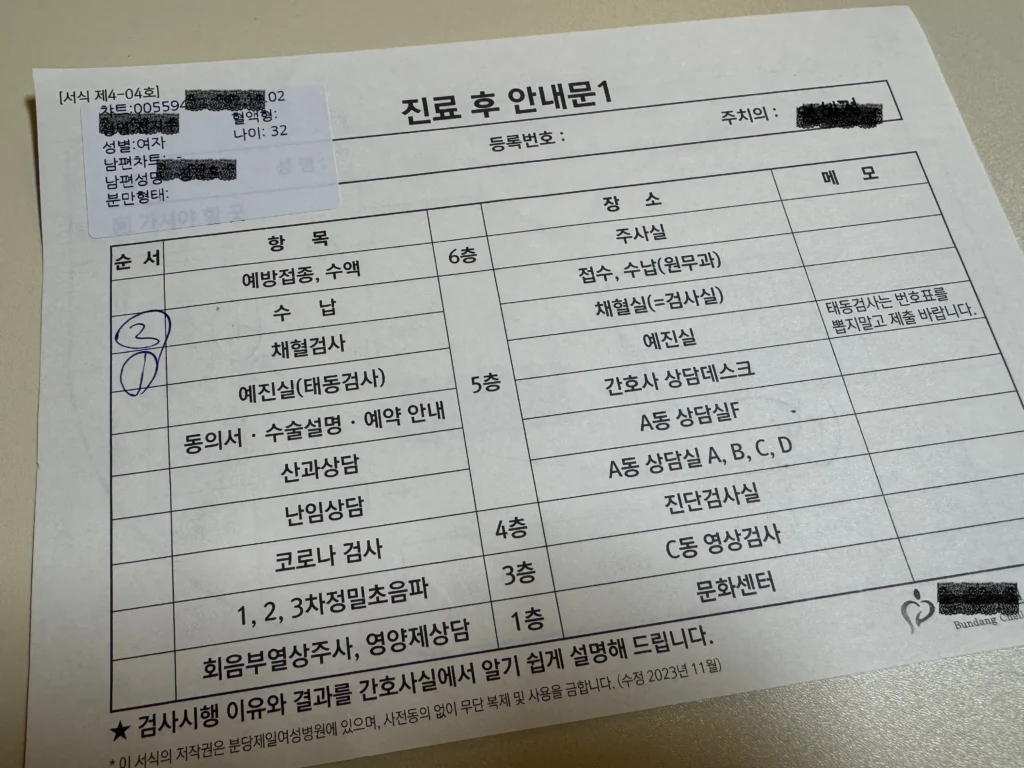 [서식 제4-04호]
차트:005594 .02
혈액형:
성별:여자 나이: 32
남편차트:
남편성명
분만형태:
진료 후 안내문1
등록번호 : 주치의 :
성 명 :
가셔야 할 곳
순 서 항 목 장 소 메 모
예방접종, 수액 6층 주사실
수 납 5층 접수, 수납(원무과)
채혈검사 채혈실(=검사실)
1 예진실(태동검사) 예진실 태동검사는 번호표를 뽑지말고 제출 바랍니다.
동의서 · 수술설명 · 예약 안내 간호사 상담데스크
산과상담 A동 상담실F
난임상담 A동 상담실 A, B, C, D
코로나 검사 4층 진단검사실
1, 2, 3차정밀초음파 3층 C동 영상검사
회음부열상주사, 영양제상담 1층 문화센터
★ 검사시행 이유와 결과를 간호사실에서 알기 쉽게 설명해 드립니다.
* 이 서식의 저작권은 분당제일여성병원에 있으며, 사전동의 없이 무단 복제 및 사용을 금합니다. (수정 2023년 11월)
Bundang